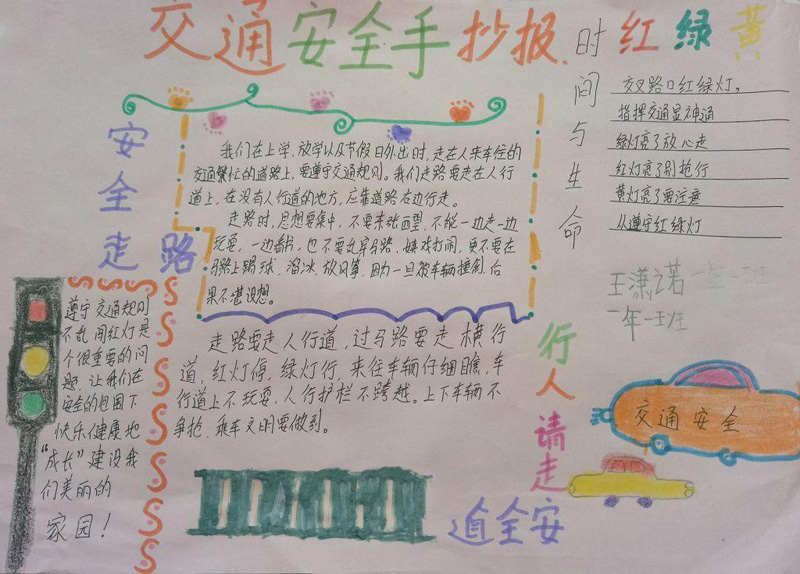 交通安全手抄报
时间与生命
红绿黄
交叉路口红绿灯，
指挥交通显神通
绿灯亮了放心走
红灯亮了别抢行
黄灯亮了要注意
从遵守红绿灯
王潇之若
一年一班
一年一班
安全走路
我们在上学，放学以及节假日外出时，走在人来车往的
交通繁忙的道路上，要遵守交通规则。我们走路要走在人行
道上，在没有人行道的地方，应靠道路右边行走。
走路时，思想要集中，不要东张西望，不能一边走一边
玩耍，一边看书，也不要乱穿马路，嬉戏打闹，更不要在
马路上踢球，溜冰，放风筝，因为一旦被车辆撞倒，后
果不堪设想。
遵守交通规则
不乱闯红灯是
个很重要的问
题，让我们在
安全的包围下
快乐健康地
“成长”建设我
们美丽的
家园！
走路要走人行道，过马路要走横行
道，红灯停，绿灯行，来往车辆仔细瞧，车
行道上不玩耍，人行护栏不跨越。上下车辆不
争抢，乘车文明要做到。
行人请走
安全道
交通安全